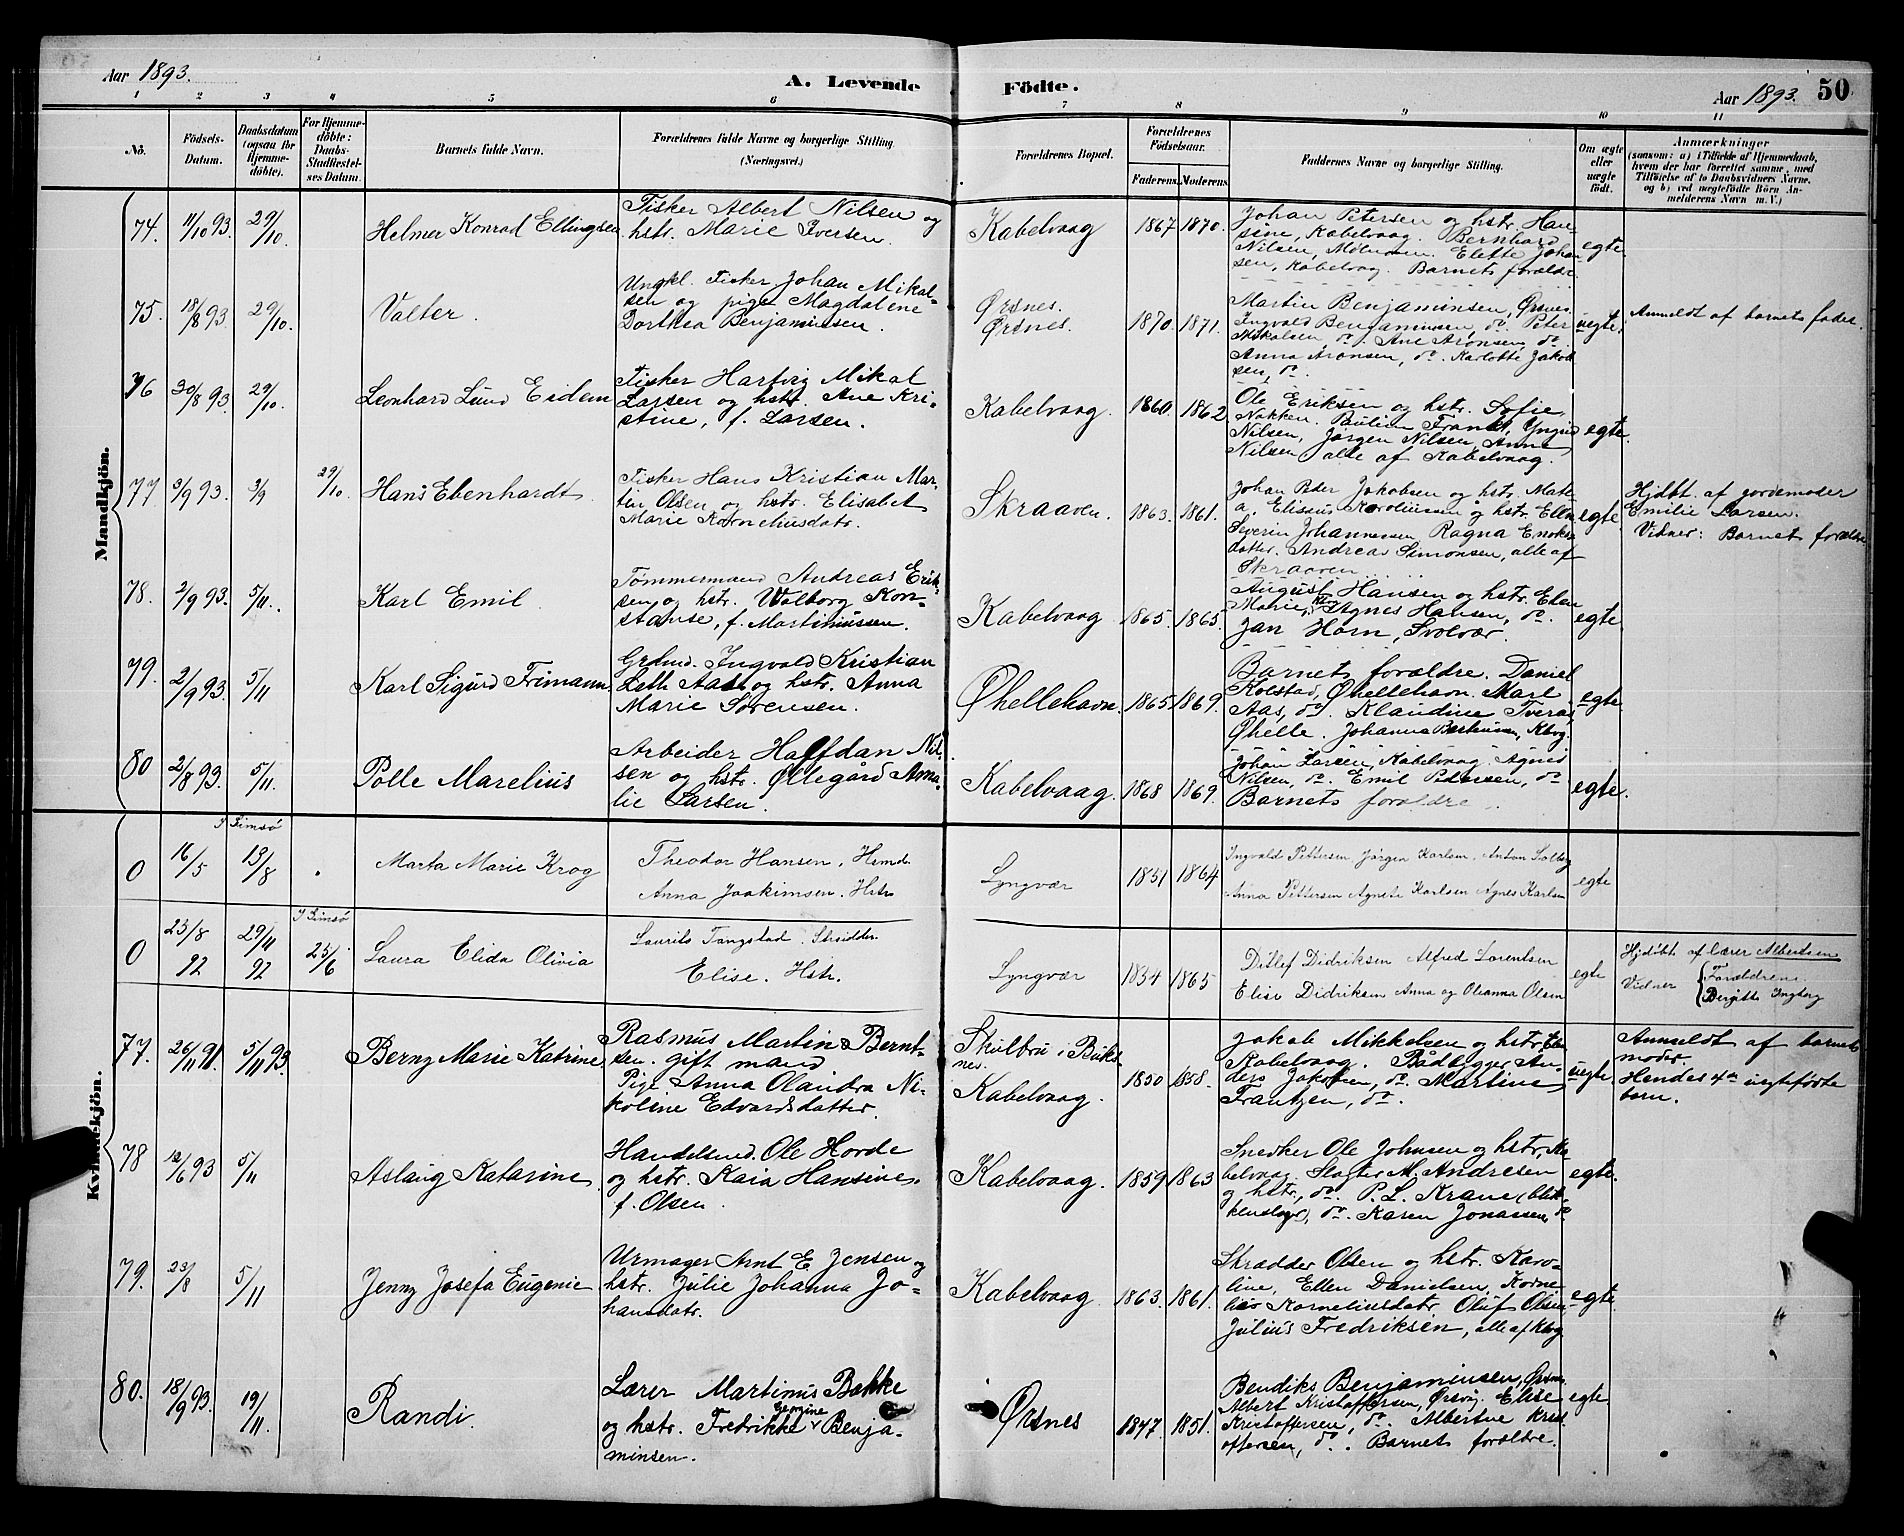 Aar 1893.
A. Levende Födte.
Aar 1893. 50
1 2 3 4 5 6 7 8 9 10 11
Nò.
Födsels-
Datum.
Daabsdatum
(ogsaa for
Hjemme-
döbte).
For Hjemme-
döbte:
Daabs-
Stadfæstel-
ses Datum.
Barnets fulde Navn.
Forældrenes fulde Navne og borgerlige Stilling
(Næringsvei.)
Forældrenes Bopæl.
Forældrenes
Födselsaar.
Faderens. Moderens.
Faddernes Navne og borgerlige Stilling.
Om ægte
eller
uægte
födt.
Anmærkninger
(saasom: a) i Tilfælde af Hjemmedaab,
hvem der har forrettet samme, med
Tilföielse af to Daabsvidners Navne,
og b) ved uægtefödte Börn An-
melderens Navn m. V.)
Mandkjön.
74. 11/10 93. 29/10. Helmer Konrad Ellingsen
Fisker Albert Nilsen og
hstr. Marie Iversen.
Kabelvaag 1867 1870.
Johan Petersen og hstr. Han-
sine, Kabelvaag. Bernhard
Nilsen, Elette Johan-
sen, Kabelvaag. Barnets forældre.
egte.
75. 18/8 93. 29/10. Valter.
Ungkl. Fisker Johan Mikal-
sen og pige Magdalene
Dorthea Benjaminsen.
Ørsnes.
Ørsnes. 1870. 1871.
Martin Benjaminsen, Ørsnes.
Ingvald Benjaminsen, do. Peter
Mikalsen, do. Ane Aronsen, do.
Anna Aronsen, do. Karlotte Jakob-
sen, do.
uegte.
Anmeldt af barnets fader.
76 30/8 93. 29/10. Leonhard Lund Eidem
Fisker Hartvig Mikal
Larsen og hstr. Ane Kri-
stine, f. Larsen.
Kabelvaag. 1860. 1862.
Ole Eriksen og hstr. Sofie,
Nakken. Pauline
Nilsen, Jørgen Nilsen, Anna
Nilsen alle af Kabelvaag.
egte.
77 3/9 93. 3/9 29/10. Hans Ebenhardt.
Fisker Hans Kristian Mar-
tin Olsen og hstr. Elisabet
Marie Korneliusdatr.
Skraaven. 1863. 1861.
Johan Peder Jakobsen og hstr. Mate-
a. Elisæus Karoliussen og hstr. Ellen
Severin Johannessen, Ragna Enoks-
datter. Andreas Simonsen, alle af
Skraaven.
egte
Hjdbt. af jordemoder
Emilie Larsen.
Vidner: Barnets forældre
78. 2/9 93. 5/11. Karl Emil.
Tømmermand Andreas Erik-
sen og hstr. Walborg Kon-
stanse, f. Martinussen.
Kabelvaag 1865. 1865.
August Hansen og hstr. Elen
Marie, Kbvg. Agnes Hansen, do.
Jan Horn, Svolvær.
egte.
79. 2/9 93. 5/11 Karl Sigurd Frimann
Grdmd. Ingvald Kristian
Leth Aas og hstr. Anna
Marie Sørensen.
Øhellehavn. 1865 1869.
Barnets forældre. Daniel
Kolstad, Øhellehavn. Marl
Aas, do. Klaudine Tveraa,
Øhelle. Johanna Kbvg.
egte.
80 2/8 93. 5/11. Polle Marelius
Arbeider Halfdan Nil-
sen og hstr. Øllegård Ama-
lie Larsen.
Kabelvaag. 1868 1869.
Johan Larsen, Kabelvaag. Agnes
Nilsen, do. Emil Pedersen, do
Barnets forældre.
egte.
Kvindekjön.
I Gimsø
0 16/5 13/8 Marta Marie Krog
Theodor Hansen. Hrmd.
Anna Joakimsen. Hstr.
Lyngvær 1851 1864
Ingvald Pettersen Jørgen Karlsen, Anton Solberg
Anna Pettersen Agnete Karlsen Agnes Karlsen
egte
I Gimsø
0 23/8 92 29/11 92 25/6 Laura Elida Olivia
Laurits Tangstad. Skrædder.
Elise. Hstr.
Lyngvær 1834 1865
Ditlef Didriksen Alfred Lorentsen
Elise Didriksen Anna og Oleanna Olsen
egte
Hjdøbt af lærer Albertsen
Vidner Forældrene
Bergitte Ingberg
77. 26/11 91. 5/11 93. Berny Marie Katrine
Rasmus Martin Bernt-
sen. gift mand
Pige Anna Olandra Ni-
koline Edvardsdatter.
Skulbru i Buks-
nes.
Kabelvaag. 1850 1858.
Jakob Mikkelsen og hstr Elen
Kabelvaag. Bådbygger An-
ders Jakobsen, do. Martine
Frantzen, do.
uegte
Anmeldt af barnets
moder.
Hendes 4de uegtefødte
barn.
78 12/6 93 5/11 Aslaug Katarine
Handelsmd. Ole Horde
og hstr. Kaia Hansine
f. Olsen.
Kabelvaag. 1859 1863
Snedker Ole Johnsen og hstr. Ka-
belvaag. Slagter M. Andresen
og hstr., do. P. L. Krane (blik-
kenslager), do. Karen Jonassen, do
egte.
79. 23/8 5/11 Jenny Josefa Eugenie
Urmager Arnt E. Jensen og
hstr. Julie Johanna Jo-
hansdatr.
Kabelvaag 1863. 1861.
Skrædder Olsen og hstr. Karo-
line, Ellen Danielsen, Korne-
lia Korneliusdatr. Oluf Olsen,
Julius Fredriksen, alle af Kbvg
egte.
80. 18/9 93. 19/11. Randi.
Lærer Martinus Bakke
og hstr. Fredrikke Georgine Benja-
minsen.
Ørsnes 1847. 1851.
Bendiks Benjaminsen, Ørsnes.
Albert Kristoffersen, Ørsvåg. Elise
Kristoffersen, do. Albertine Krist-
offersen, do. Barnets forældre.
egte